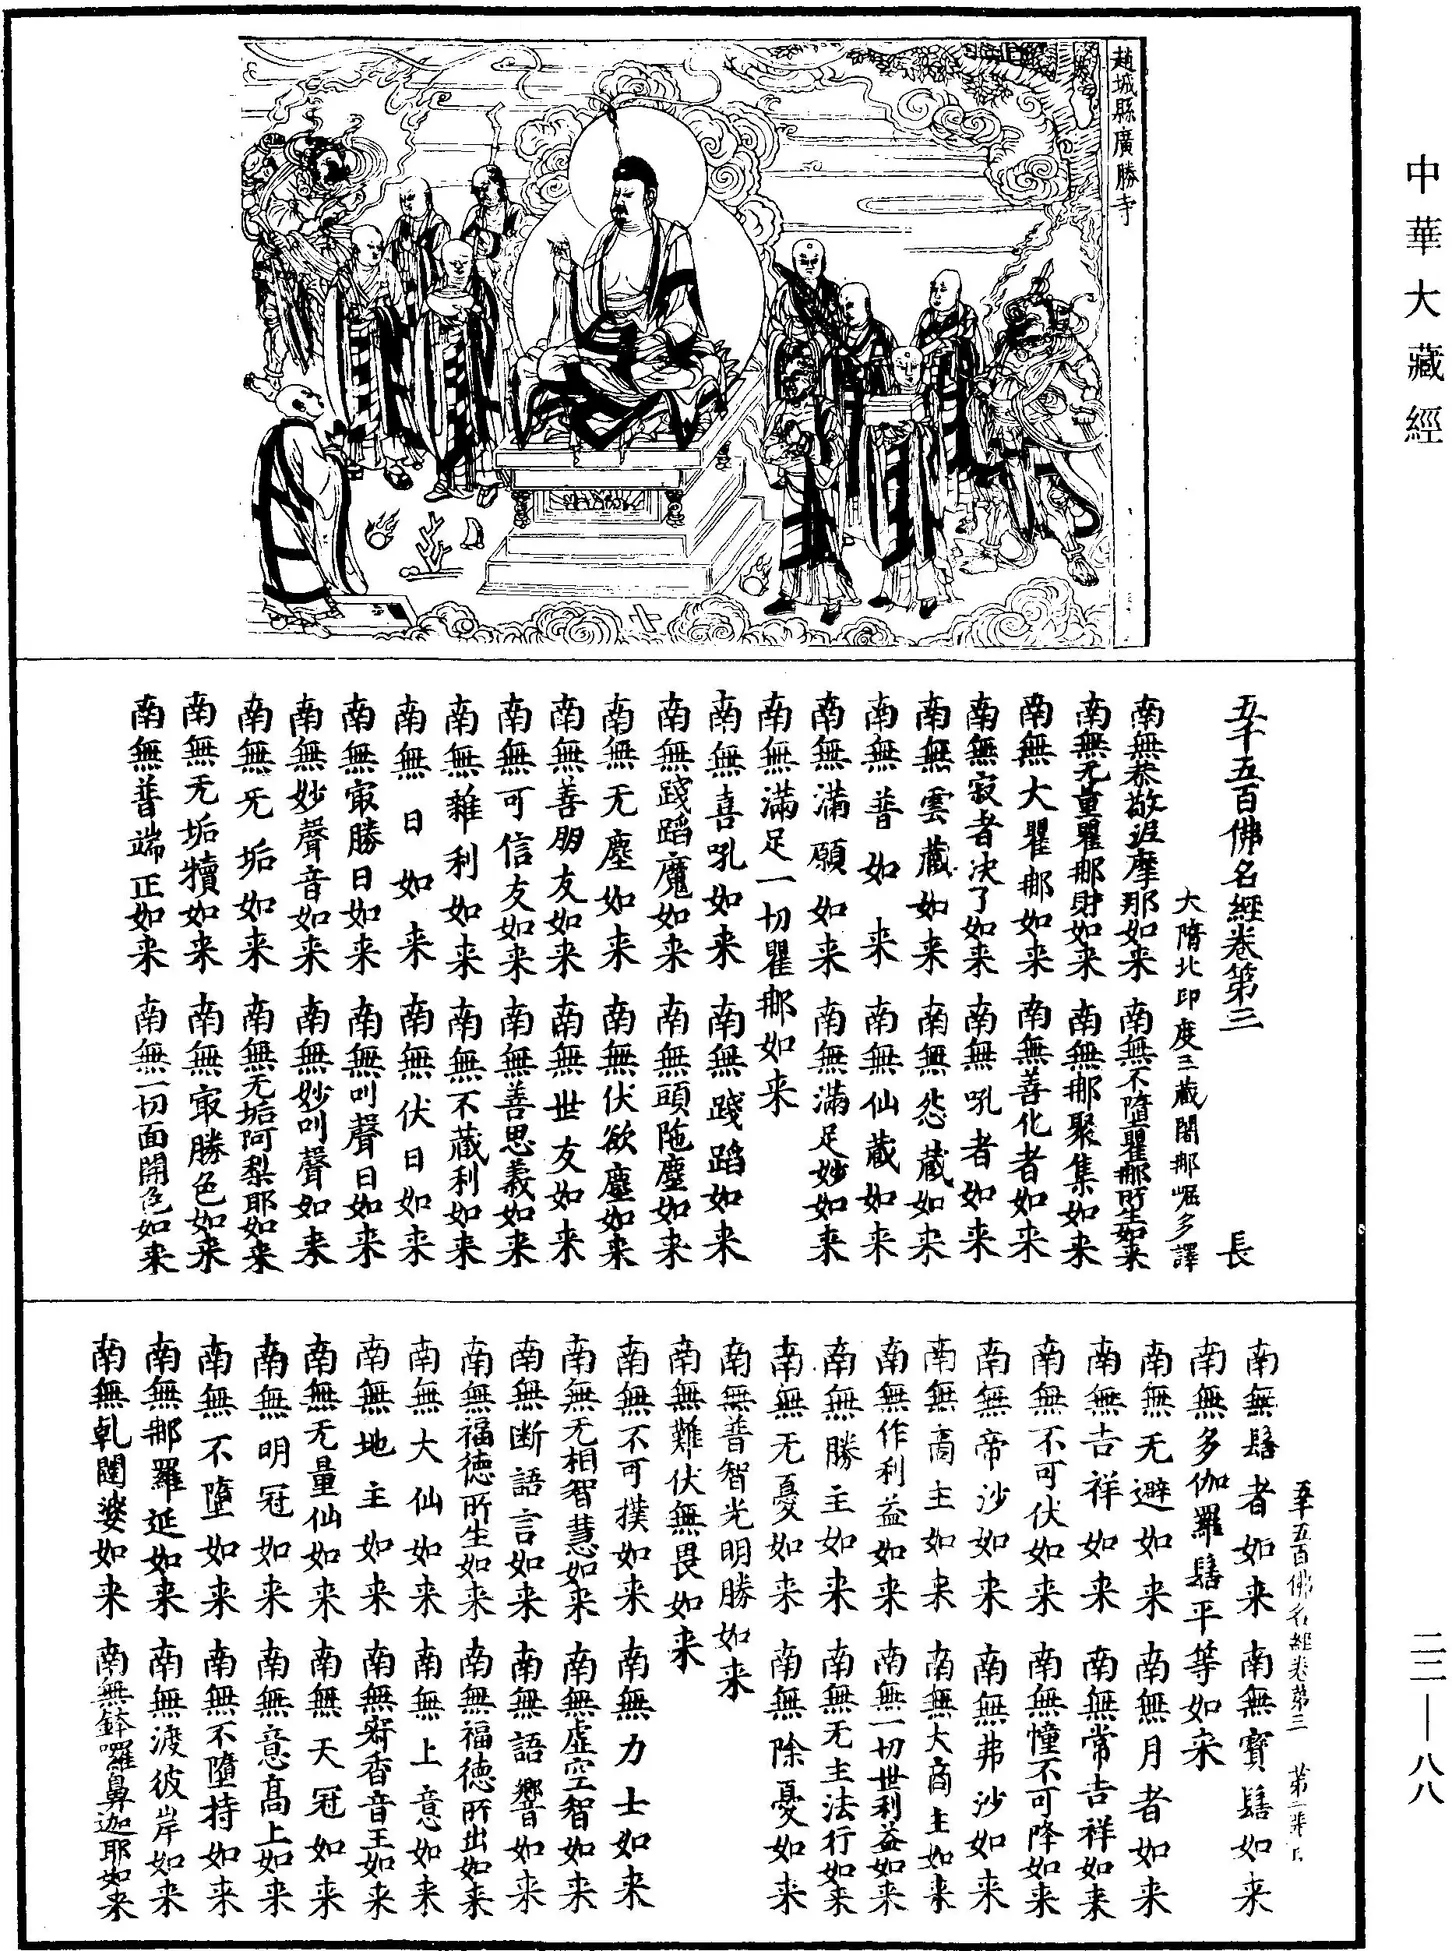 中華大藏經
二二—八八
趙城縣廣勝寺
五千五百佛名經卷第三　長
大隋北印度三藏闍那崛多譯
南無恭敬返摩那如来　南無不墮瞿那所生如来
南無无量瞿那財如来　南無那聚集如来
南無大瞿那如来　南無善化者如来
南無寂者决了如来　南無吼者如来
南無雲藏如来　南無忩藏如来
南無普如来　南無仙藏如来
南無滿願如来　南無滿足妙如来
南無滿足一切瞿那如来
南無喜吼如来　南無踐蹈如来
南無踐蹈魔如来　南無頭陁塵如来
南無无塵如来　南無伏欲塵如来
南無善朋友如来　南無世友如来
南無可信友如来　南無善思義如来
南無雜利如来　南無不藏利如来
南無日如来　南無伏日如来
南無㝡勝日如来　南無叫聲日如来
南無妙聲音如来　南無妙叫聲如来
南無无垢如来　南無无垢阿梨耶如来
南無无垢犢如来　南無㝡勝色如来
南無普端正如来　南無一切面開色如来
五千五百佛名經卷第三　第二
南無髻者如来　南無寳髻如来
南無多伽羅髻平等如来
南無无避如来　南無月者如来
南無吉祥如来　南無常吉祥如来
南無不可伏如来　南無憧不可降如来
南無帝沙如来　南無弗沙如来
南無商主如来　南無大商主如来
南無作利益如来　南無一切世利益如来
南無勝主如来　南無无主法行如来
南無无憂如来　南無除憂如来
南無普智光明勝如来
南無難伏無畏如来
南無不可撲如来　南無力士如来
南無无相智慧如来　南無虛空智如来
南無断語言如来　南無語響如来
南無福徳所生如来　南無福徳所出如来
南無大仙如来　南無上意如来
南無地主如来　南無香音王如来
南無无量仙如来　南無天冠如来
南無明冠如来　南無意髙上如来
南無不墮如来　南無不墮持如来
南無那羅延如来　南無渡彼岸如来
南無乹闥婆如来　南無鉢囉鼻迦耶如来